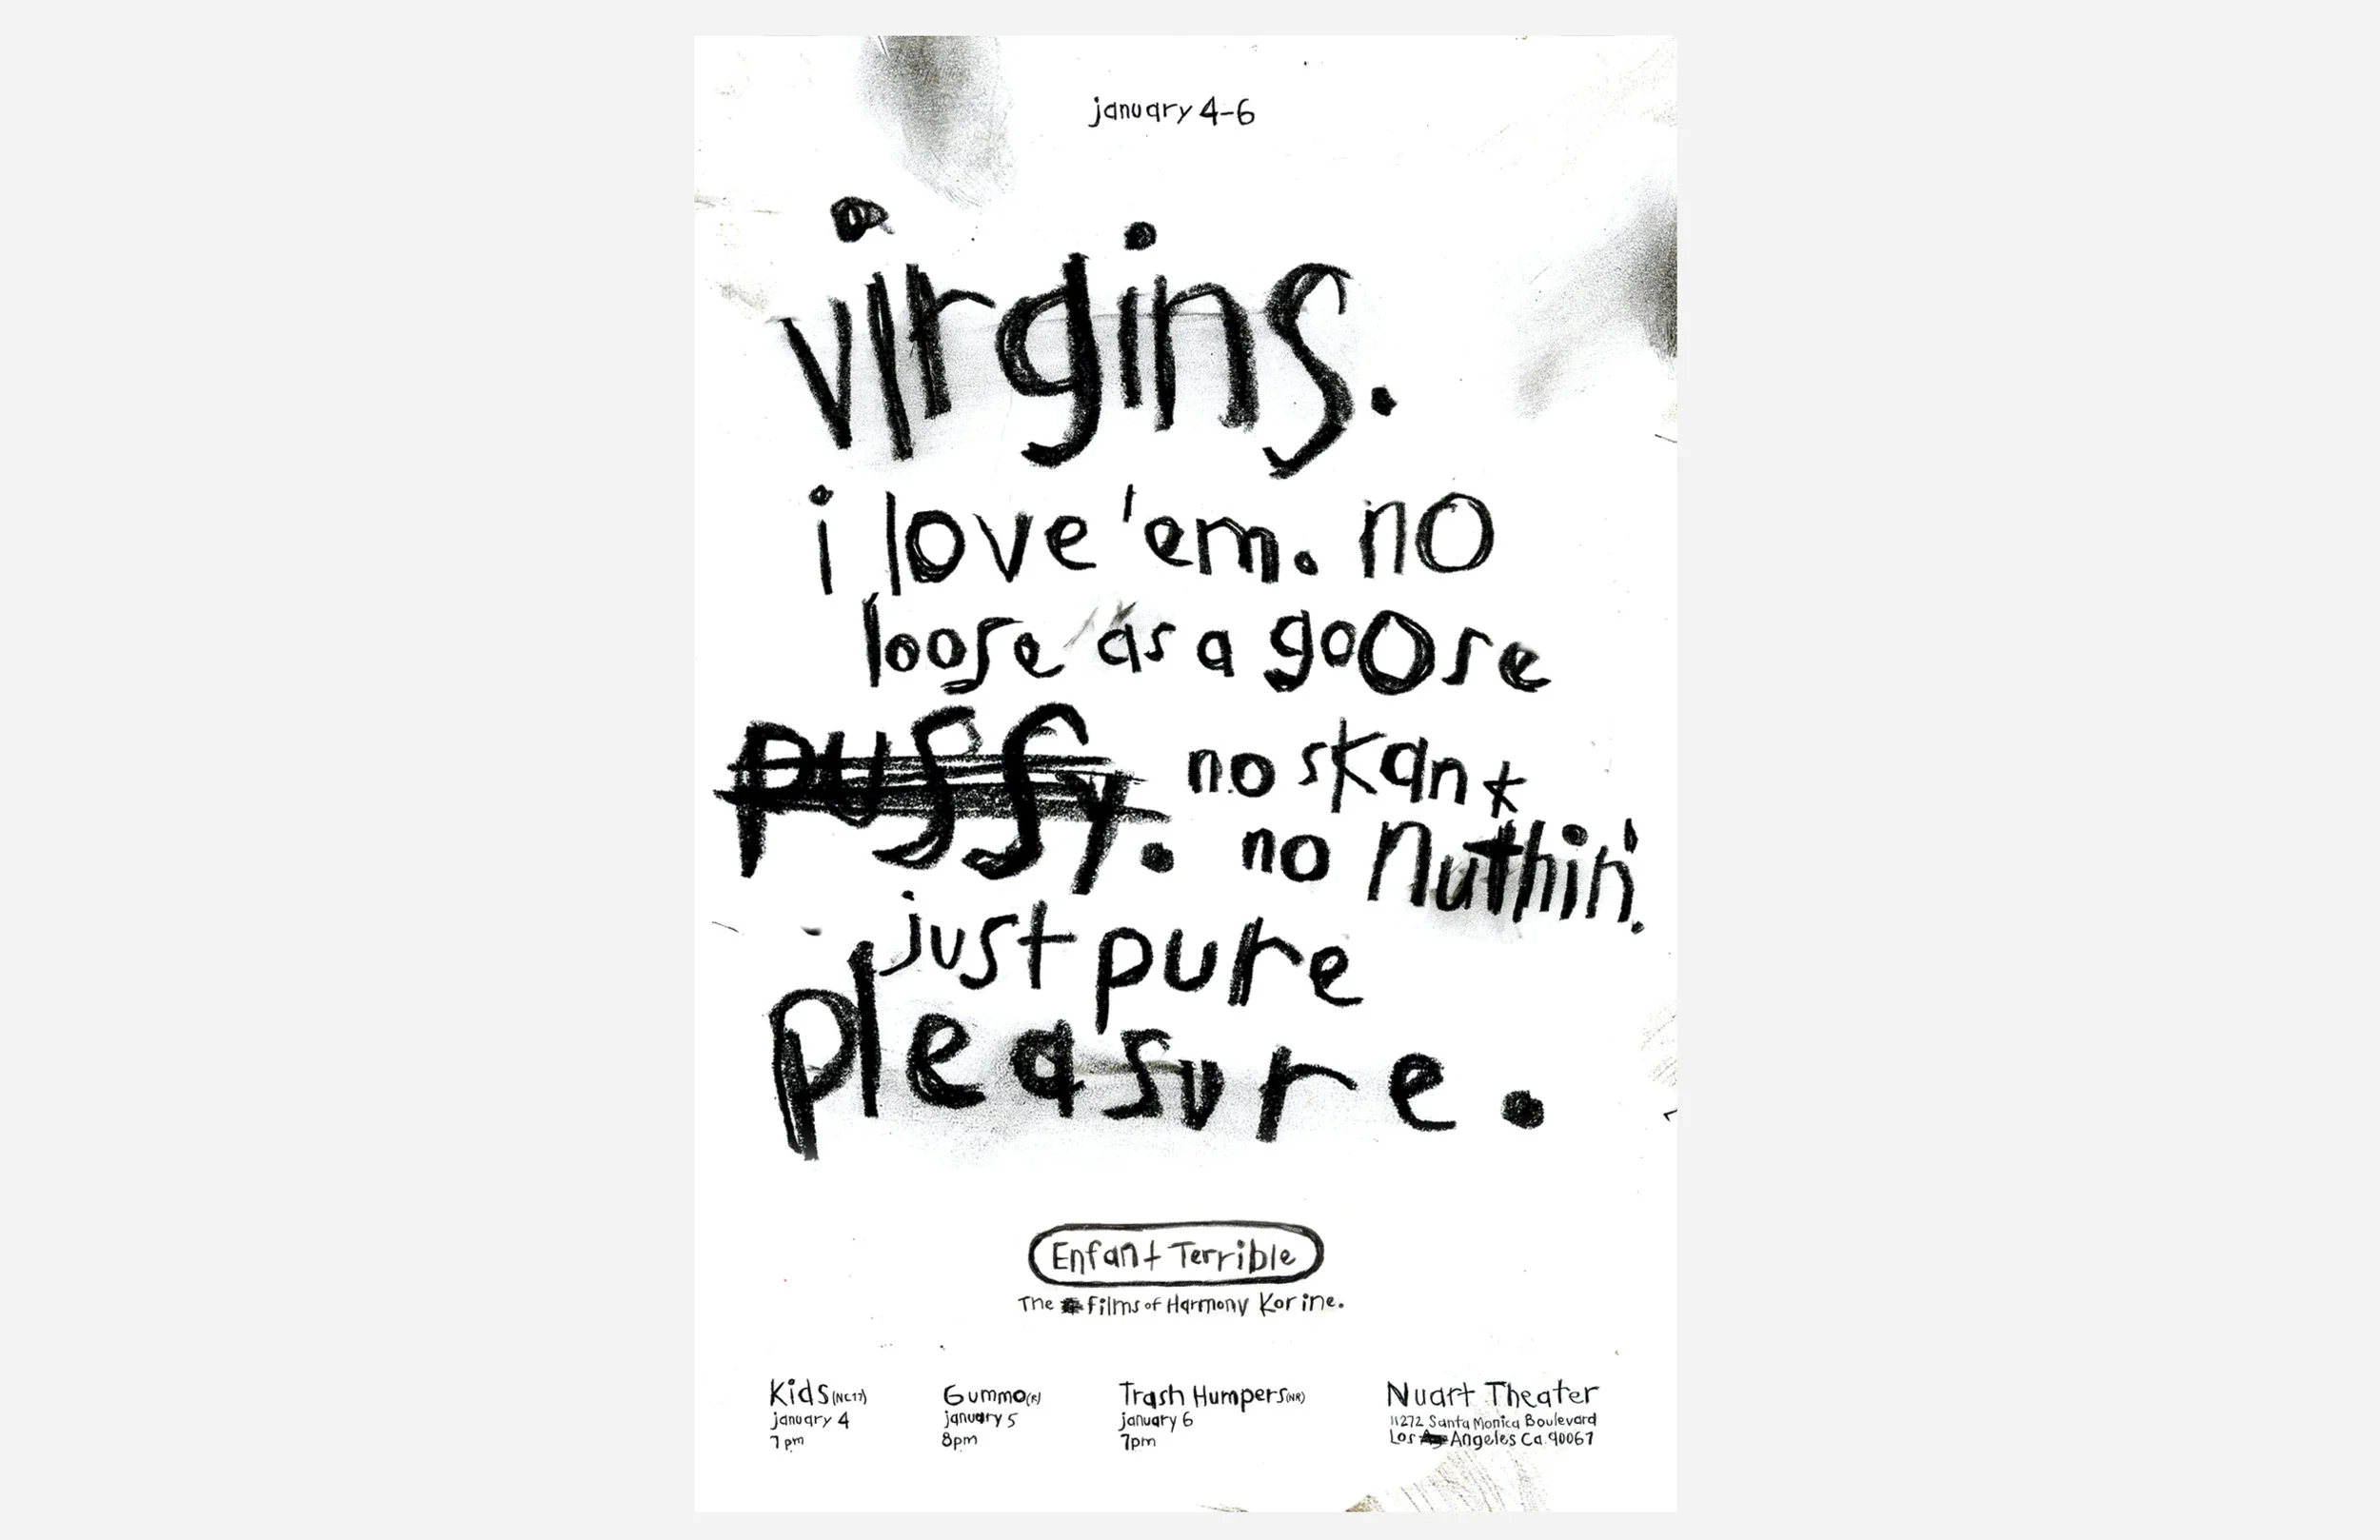 january 4-6
virgins.
i love 'em. no
loose as a goose
pussy. no skank
no nuthin'.
just pure
pleasure.
Enfant Terrible
The films of Harmony Korine.
Kids (NC17)
january 4
7pm
Gummo (R)
january 5
8pm
Trash Humpers (NR)
january 6
7pm
Nuart Theater
11272 Santa Monica Boulevard
Los Angeles Ca. 90067